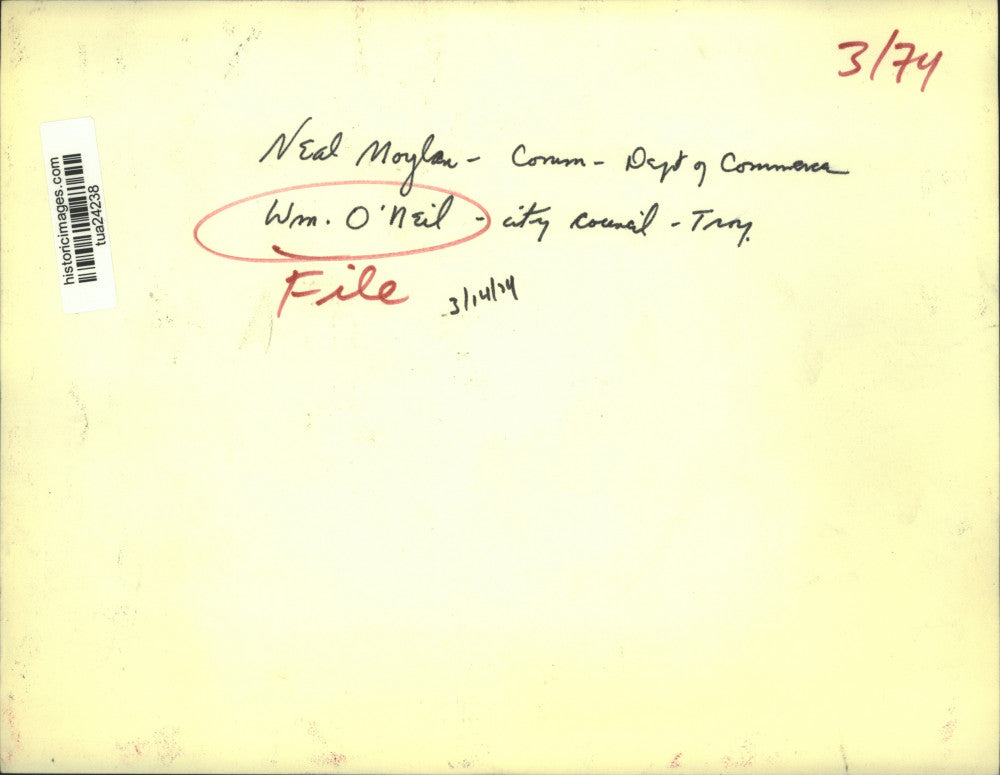 3/74
Neal Moylan - Comm - Dept of Commerce
Wm. O'Neil - city council - Troy.
File 3/14/74
historicimages.com
tua24238